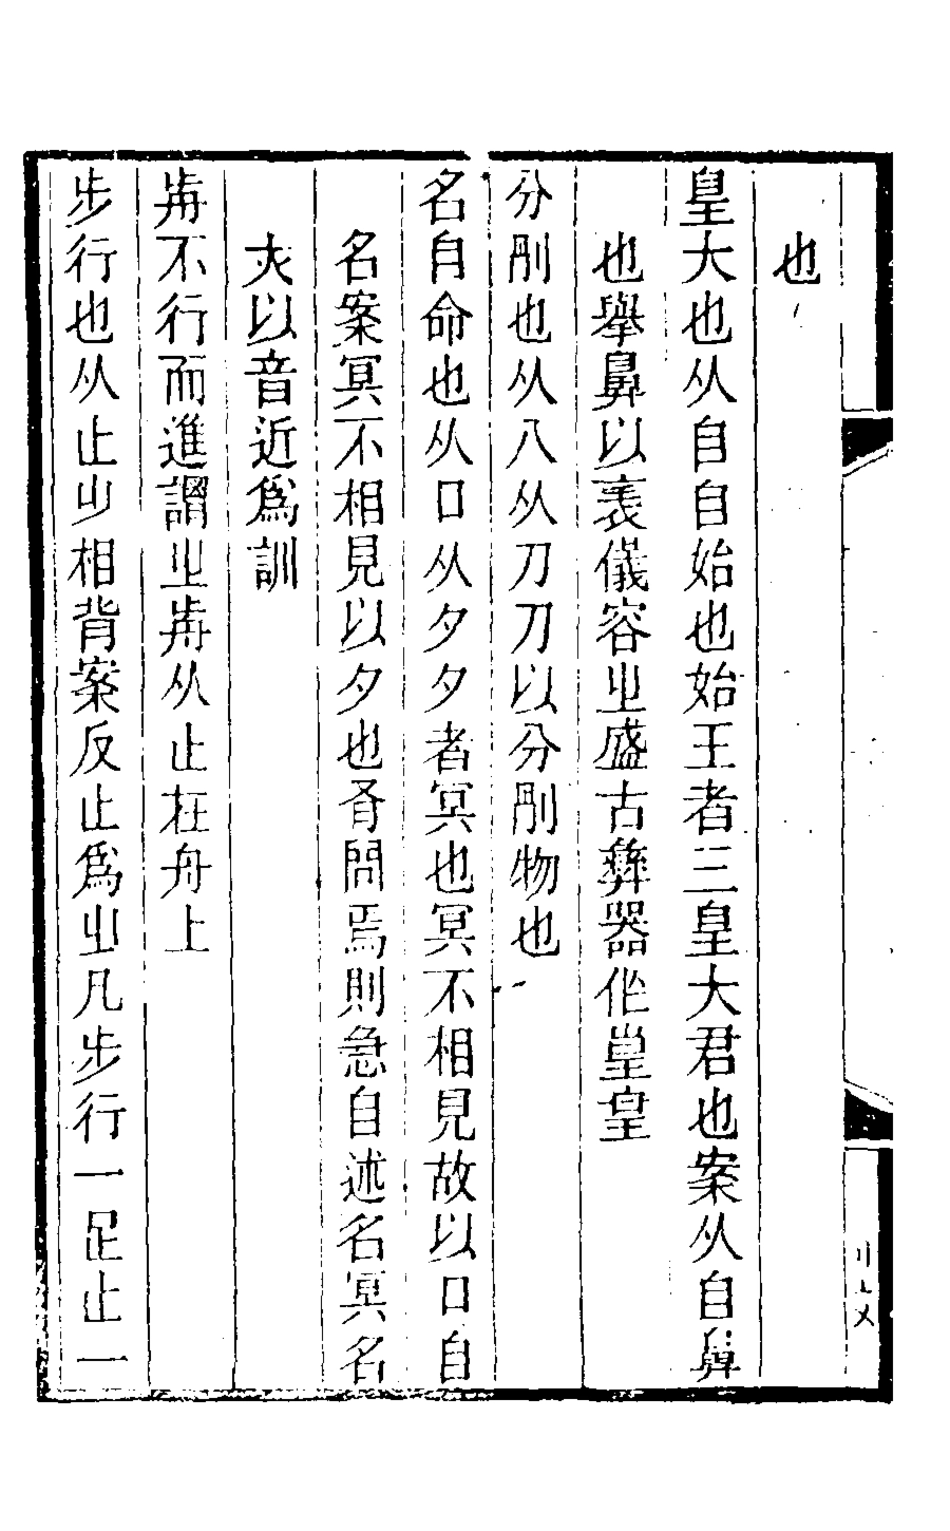 也
皇大也从自自始也始王者三皇大君也案从自鼻
也舉鼻以表儀容㞢盛古彝器作皇皇
分剛也从八从刀刀以分剛物也
名自命也从口从夕夕者冥也冥不相見故以口自
名案冥不相見以夕也有問焉則急自述名冥名
夾以音近爲訓
歬不行而進謂㞢歬从止在舟上
步行也从止少相背案反止爲㞢凡步行一足止一